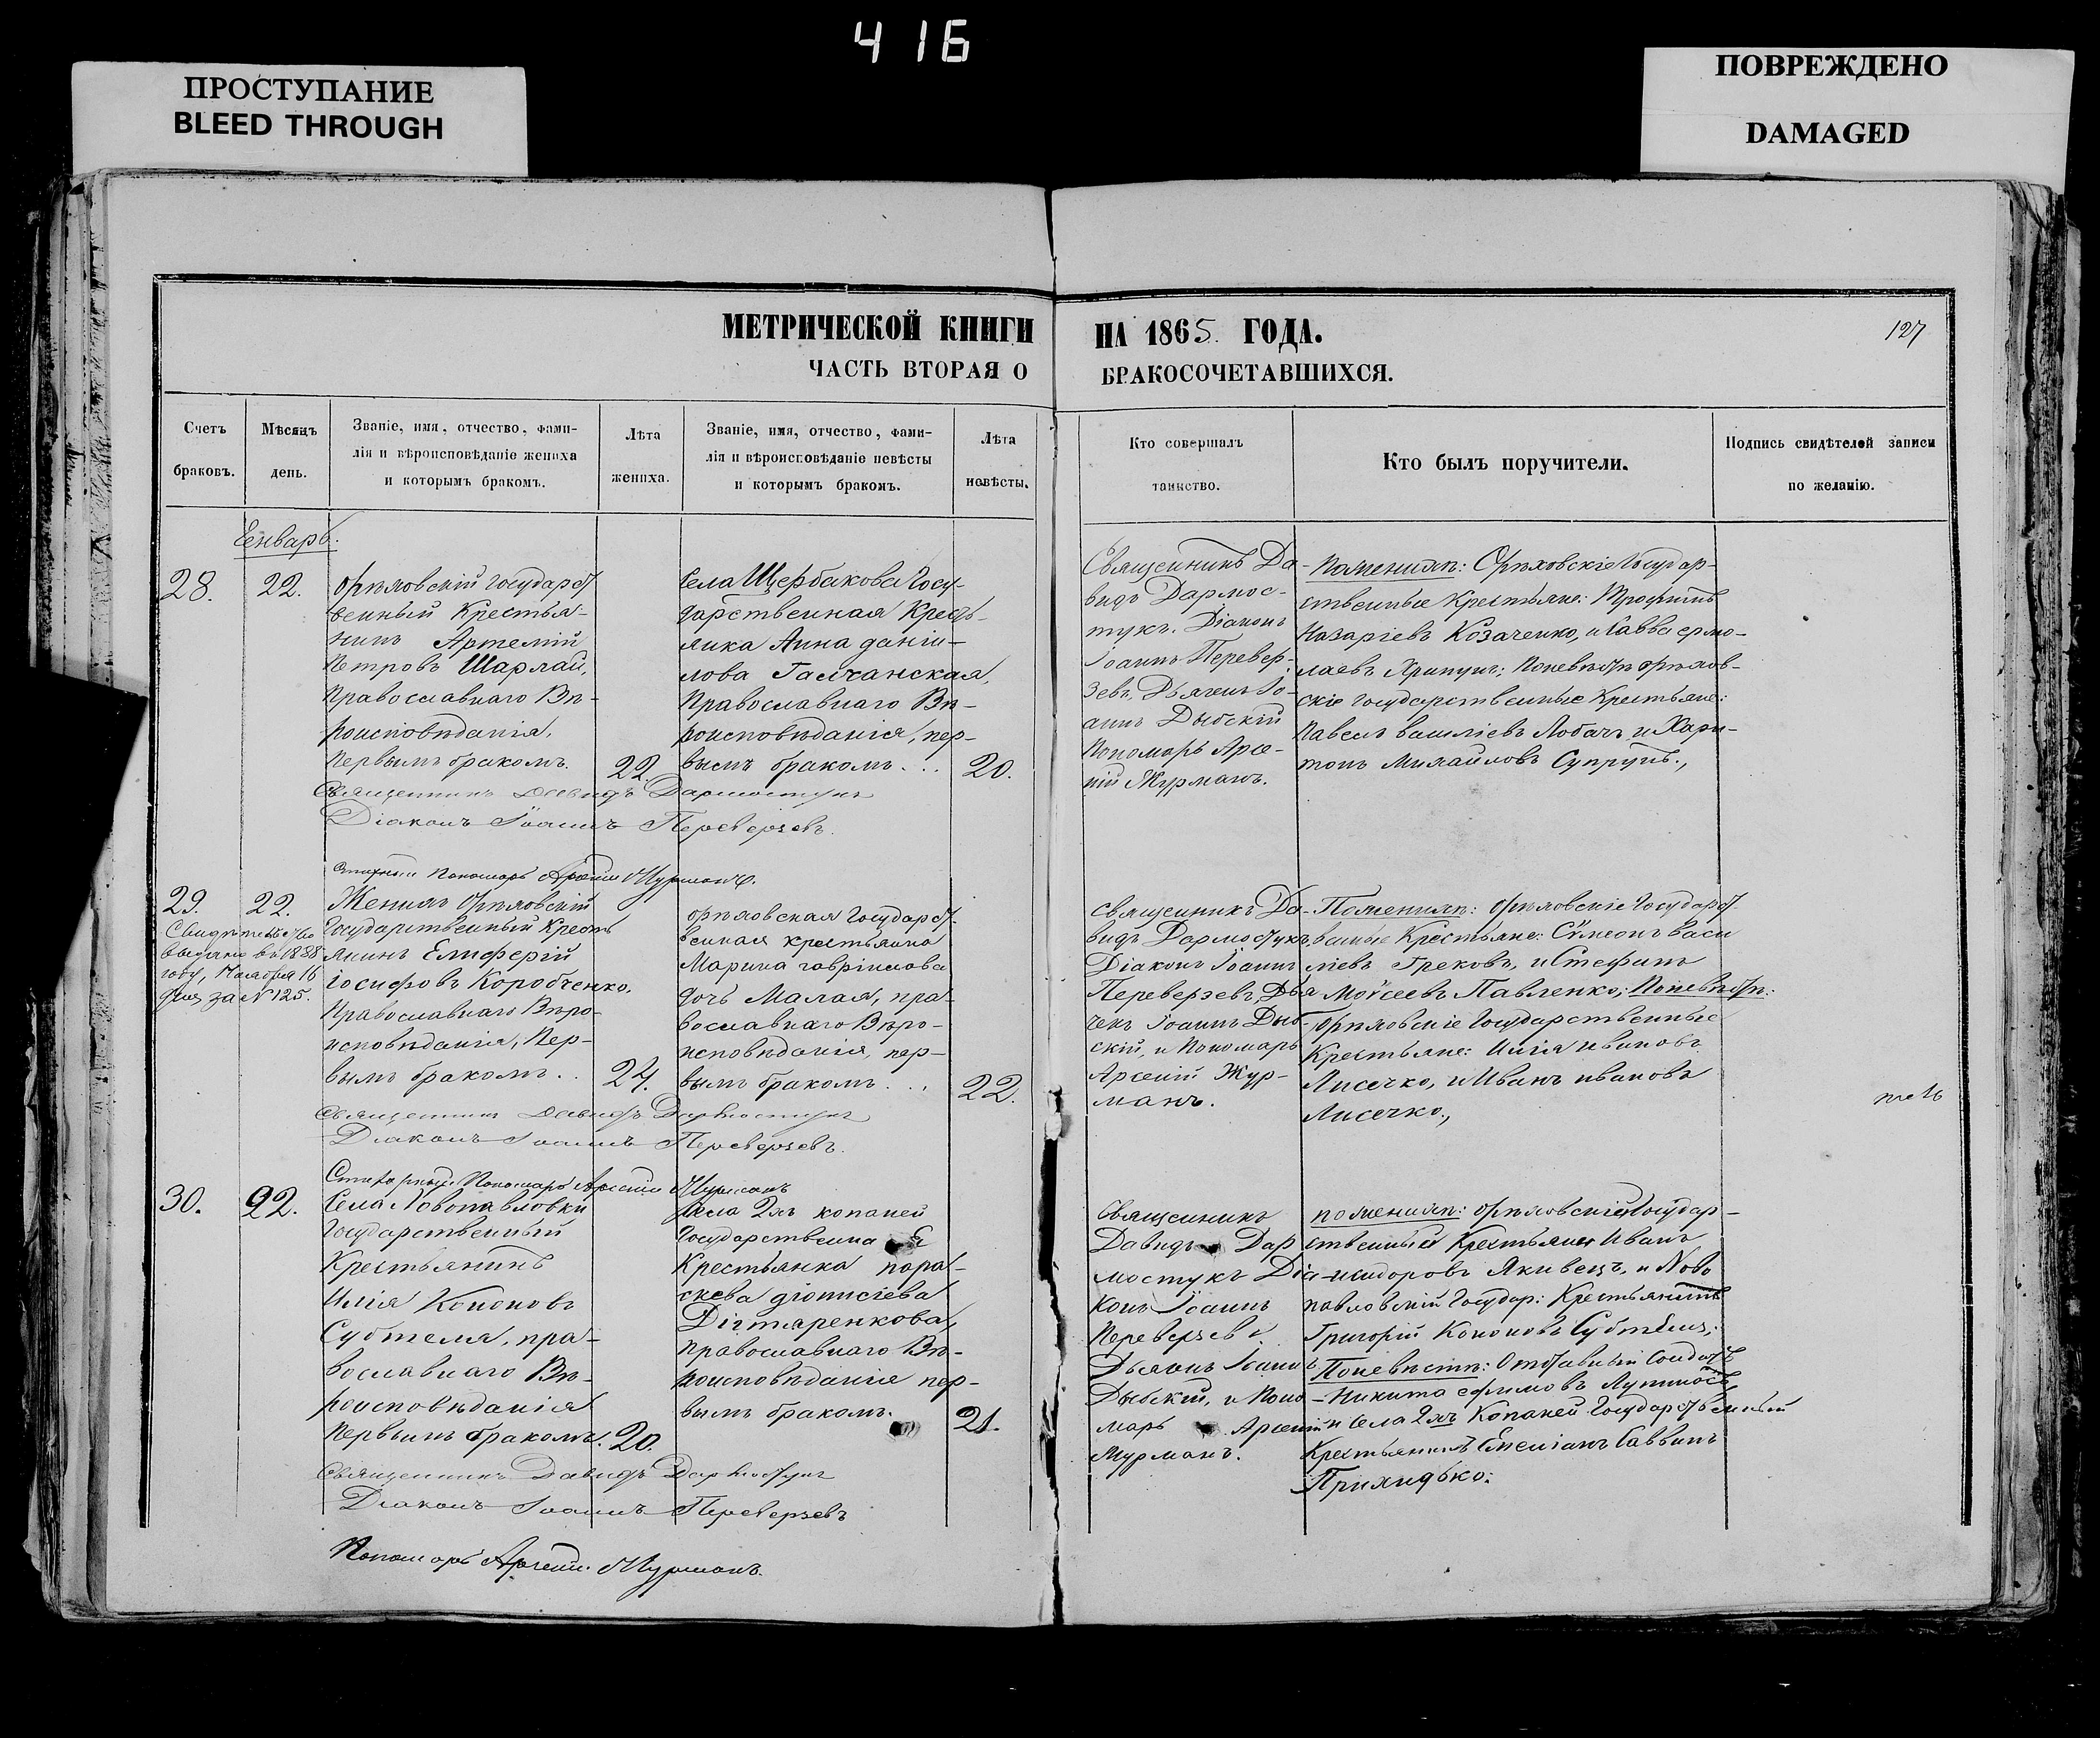 416
ПРОСТУПАНИЕ
BLEED THROUGH
ПОВРЕЖДЕНО
DAMAGED
МЕТРИЧЕСКОЙ КНИГИ НА 1865 ГОДА.
127
ЧАСТЬ ВТОРАЯ О БРАКОСОЧЕТАВШИХСЯ.
Счетъ
браковъ.
Мѣсяцъ
день.
Званіе, имя, отчество, фами-
лія и вѣроисповѣданіе жениха
и которымъ бракомъ.
Лѣта
жениха.
Званіе, имя, отчество, фами-
лія и вѣроисповѣданіе невѣсты
и которымъ бракомъ.
Лѣта
невѣсты.
Кто совершалъ
таинство.
Кто былъ поручители.
Подпись свидѣтелей записи
по желанію.
Генварь.
28.
22.
Орѣховскій Государст
венный Крестья-
нинъ Артемій
Петровъ Шарлай,
Православнаго Вѣ-
роисповѣданія,
Первымъ бракомъ.
22.
Села Щербакова Госу-
дарственная Кресть-
янка Анна Даніи-
лова Галчанская,
Православнаго Вѣ-
роисповѣданія, пер-
вымъ бракомъ...
20.
Священникъ Да-
видъ Дармос-
тукъ. Діаконъ
Іоаннъ Перевер-
зевъ, Дьячекъ Іо-
аннъ Дыбскій
Пономарь Арсе-
ній Журманъ.
Поженихѣ: Орѣховскіе Государ-
ственные Крестьяне: Трофимъ
Назаріевъ Козаченко, и Савва Ермо-
лаевъ Хрипунъ; Поневѣстѣ Орѣхов-
скіе Государственные Крестьяне:
Павелъ Василіевъ Лобачъ и Хари-
тонъ Михайловъ Супрунъ.,
Священникъ Давидъ Дармостукъ
Діаконъ Іоаннъ Переверзевъ.
Пономарь Арсеній Журманъ.
29.
22.
Свидѣтельство
выдано въ 1888
году, Ноября 16
дня за № 125.
Женихъ Орѣховскій
Государственный Кресть
янинъ Елиферій
Іосифовъ Коробченко,
Православнаго Вѣро-
исповѣданія, Пер-
вымъ бракомъ..
24.
Орѣховская Государст-
венная крестьянка
Марина Гавріилова
дочь Малая, пра-
вославнаго Вѣро-
исповѣданія, пер-
вымъ бракомъ...
22.
Священникъ Да-
видъ Дармостукъ,
Діаконъ Іоаннъ
Переверзевъ, Дья
чекъ Іоаннъ Дыб-
скій, и Пономарь
Арсеній Жур-
манъ.
Поженихѣ: Орѣховскіе Государст-
венные Крестьяне: Сѵмеонъ Васи
ліевъ Грековъ, и Стефанъ
Моѵсеевъ Павленко; Поневѣстѣ:
Орѣховскіе Государственные
Крестьяне: Илія Ивановъ
Лисечко, и Иванъ Ивановъ
Лисечко.,
Священникъ Давидъ Дармостукъ
Діаконъ Іоаннъ Переверзевъ.
Пономарь Арсеній Журманъ
30.
22.
Села Новопавловки
Государственный
Крестьянинъ
Илія Кононовъ
Субтеля, пра-
вославнаго Вѣ-
роисповѣданія
Первымъ бракомъ.
20.
Села 2хъ копаней
Государственна
Крестьянка пара-
скева Діонисіева
Дігтяренкова,
Православнаго Вѣ-
роисповѣданія пер-
вымъ бракомъ.
21.
Священникъ
Давидъ Дар
мостукъ Діа-
конъ Іоаннъ
Переверзевъ.
Дьячекъ Іоаннъ
Дыбскій, и Поно-
марь Арсеній
Журманъ.
поженихѣ: Орѣховскій Государ-
ственный Крестьянинъ Иванъ
Исидоровъ Якивецъ, и Ново
павловскій Государ: Крестьянинъ
Григорій Кононовъ Субтеля;
Поневѣстѣ: Отставный Солдатъ
Никита Ефимовъ
и Села 2хъ Копаней Государственный
Крестьянинъ Емеліанъ Саввинъ
Прихидько.
Священникъ Давидъ Дармостукъ
Діаконъ Іоаннъ Переверзевъ
Пономарь Арсеній Журманъ.